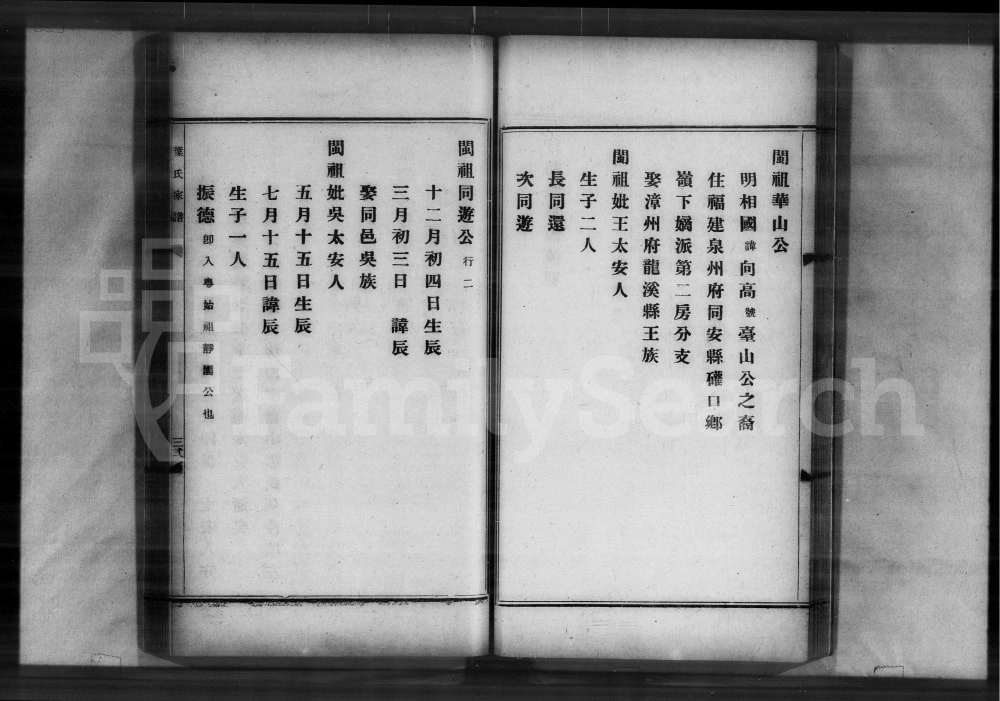 閩祖華山公
明相國諱向高號臺山公之裔
住福建泉州府同安縣礶口鄉
嶺下媯派第二房分支
娶漳州府龍溪縣王族
閩祖妣王太安人
生子二人
長同還
次同遊
閩祖同遊公行二
十二月初四日生辰
三月初三日 諱辰
娶同邑吳族
閩祖妣吳太安人
五月十五日生辰
七月十五日諱辰
生子一人
振德卽入粵始祖靜園公也
葉氏家譜
FamilySearch